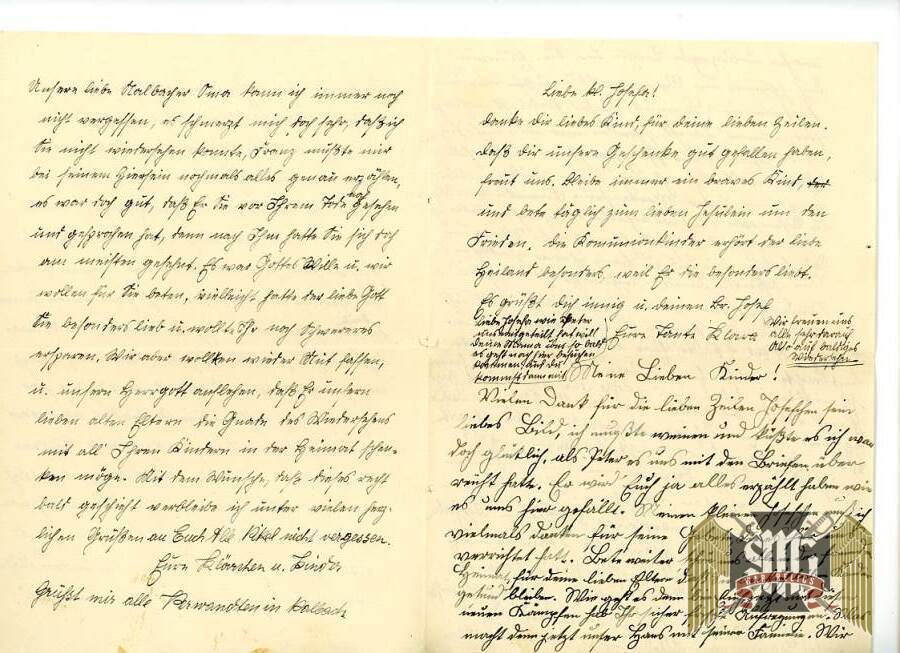 Unsere liebe Kalbacher Oma kann ich immer noch
nicht vergessen, es schmerzt mich doch sehr, daß ich
Sie nicht wiedersehen konnte, Franz mußte mir
bei seinem Hiersein nochmals alles genau erzählen,
es war doch gut, daß Er Sie vor Ihrem Tode noch gesehen
und gesprochen hat, denn nach Ihm hatte Sie sich doch
am meisten gesehnt. Es war Gottes Wille u. wir
wollen für Sie beten, vielleicht hatte der liebe Gott
Sie besonders lieb u. wollte Ihr noch Schwereres
ersparen. Wir aber wollen wieder Mut fassen,
u. unsern Herrgott anflehen, daß Er unsern
lieben alten Eltern die Gnade des Wiedersehens
mit all Ihren Kindern in der Heimat schen-
ken möge. Mit dem Wunsche, daß dieses recht
bald geschieht verbleibe ich unter vielen herz-
lichen Grüßen an Euch All nicht vergessen.
Eure Klärchen u. Kinder
Grüßt mir alle Verwandten in
Liebe kl. Josefa!
Danke Dir liebes Kind, für Deine lieben Zeilen.
Daß Dir unsere Geschenke gut gefallen haben,
freut uns. Bleibe immer ein braves Kind,
und bete täglich zum lieben Jesulein um den
Frieden. Die Komunionkinder erhört der liebe
Heiland besonders, weil Er die besonders liebt.
Es grüßt Dich innig u. deinen Br. Josef
Eure Tante Klara
liebe Josefa wie Peter
uns mitgeteilt hat will
Deine Mama uns so bald
es geht noch hier besuchen
kommen und Du
kommst dann mit
Wir freuen uns
alle sehr darauf
Also auf baldiges
Wiedersehen
Meine Lieben Kinder!
Vielen Dank für die lieben Zeilen Josefchen sein
liebes Bild, ich mußte weinen und küßte es ich war
doch glücklich, als Peter es uns mit den Briefen über
reicht hatte. Er wird Euch ja alles erzählt haben wie
es uns hier gefällt. Meinen kleinen muß ich
vielmals danken für seine
verrichtet hatt. Bete weiter
Heimat, für deine lieben Eltern
gesund bleiben. Wie geht es denn
neuen Kämpfen hab Ihr sicher Aufregungen. Was
macht denn jetzt unser Hans mit seiner Familie. Wir
SM
WAR RELICS